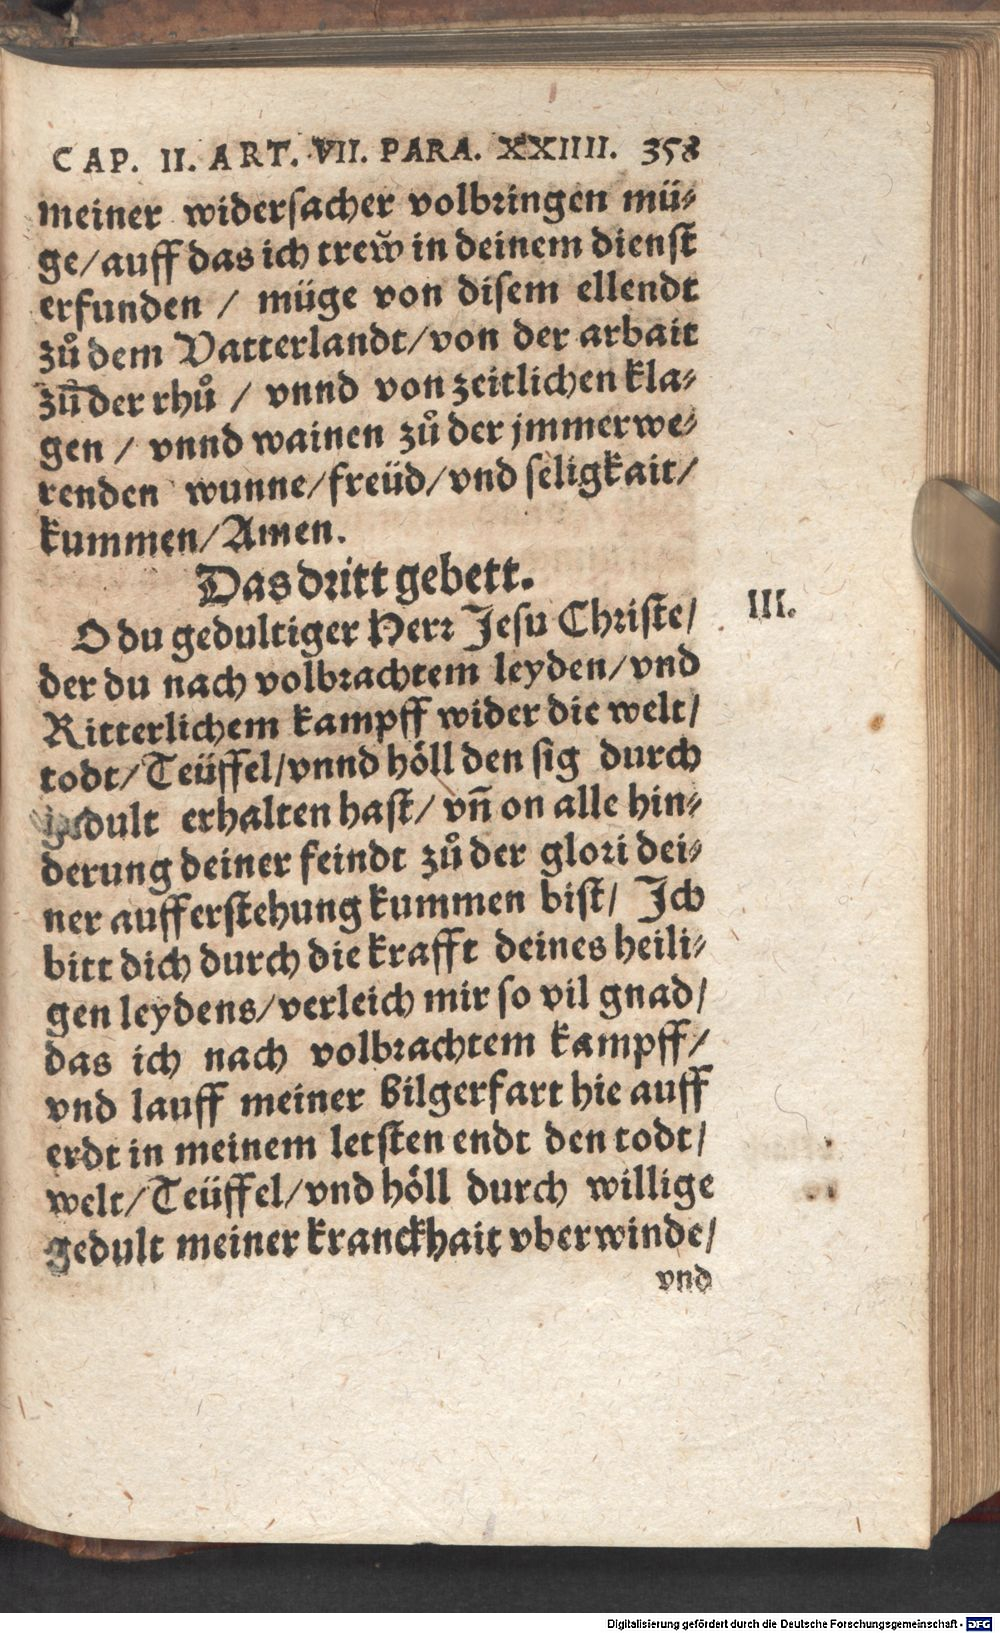 CAP. II. ART. VII. PARA. XXIIII. 358
meiner widersacher volbringen mü⸗
ge/auff das ich trew̃ in deinem dienst
erfunden / müge von disem ellendt
zů dem Vatterlandt/von der arbait
zů der rhů / vnnd von zeitlichen kla⸗
gen / vnnd wainen zů der jmmerwe⸗
renden wunne/freüd/vnd seligkait/
kummen/Amen.
Das dritt gebett.
III.
O du gedultiger Herr Jesu Christe/
der du nach volbrachtem leyden/vnd
Ritterlichem kampff wider die welt/
todt/Teüffel/vnnd höll den sig durch
gedult erhalten hast/ vñ on alle hin⸗
derung deiner feindt zů der glori dei⸗
ner aufferstehung kummen bist/ Ich
bitt dich durch die krafft deines heili⸗
gen leydens/verleich mir so vil gnad/
das ich nach volbrachtem kampff/
vnd lauff meiner Bilgerfart hie auff
erdt in meinem letsten endt den todt/
welt/Teüffel/vnd höll durch willige
gedult meiner kranckhait vberwinde/
vnd
Digitalisierung gefördert durch die Deutsche Forschungsgemeinschaft - DFG